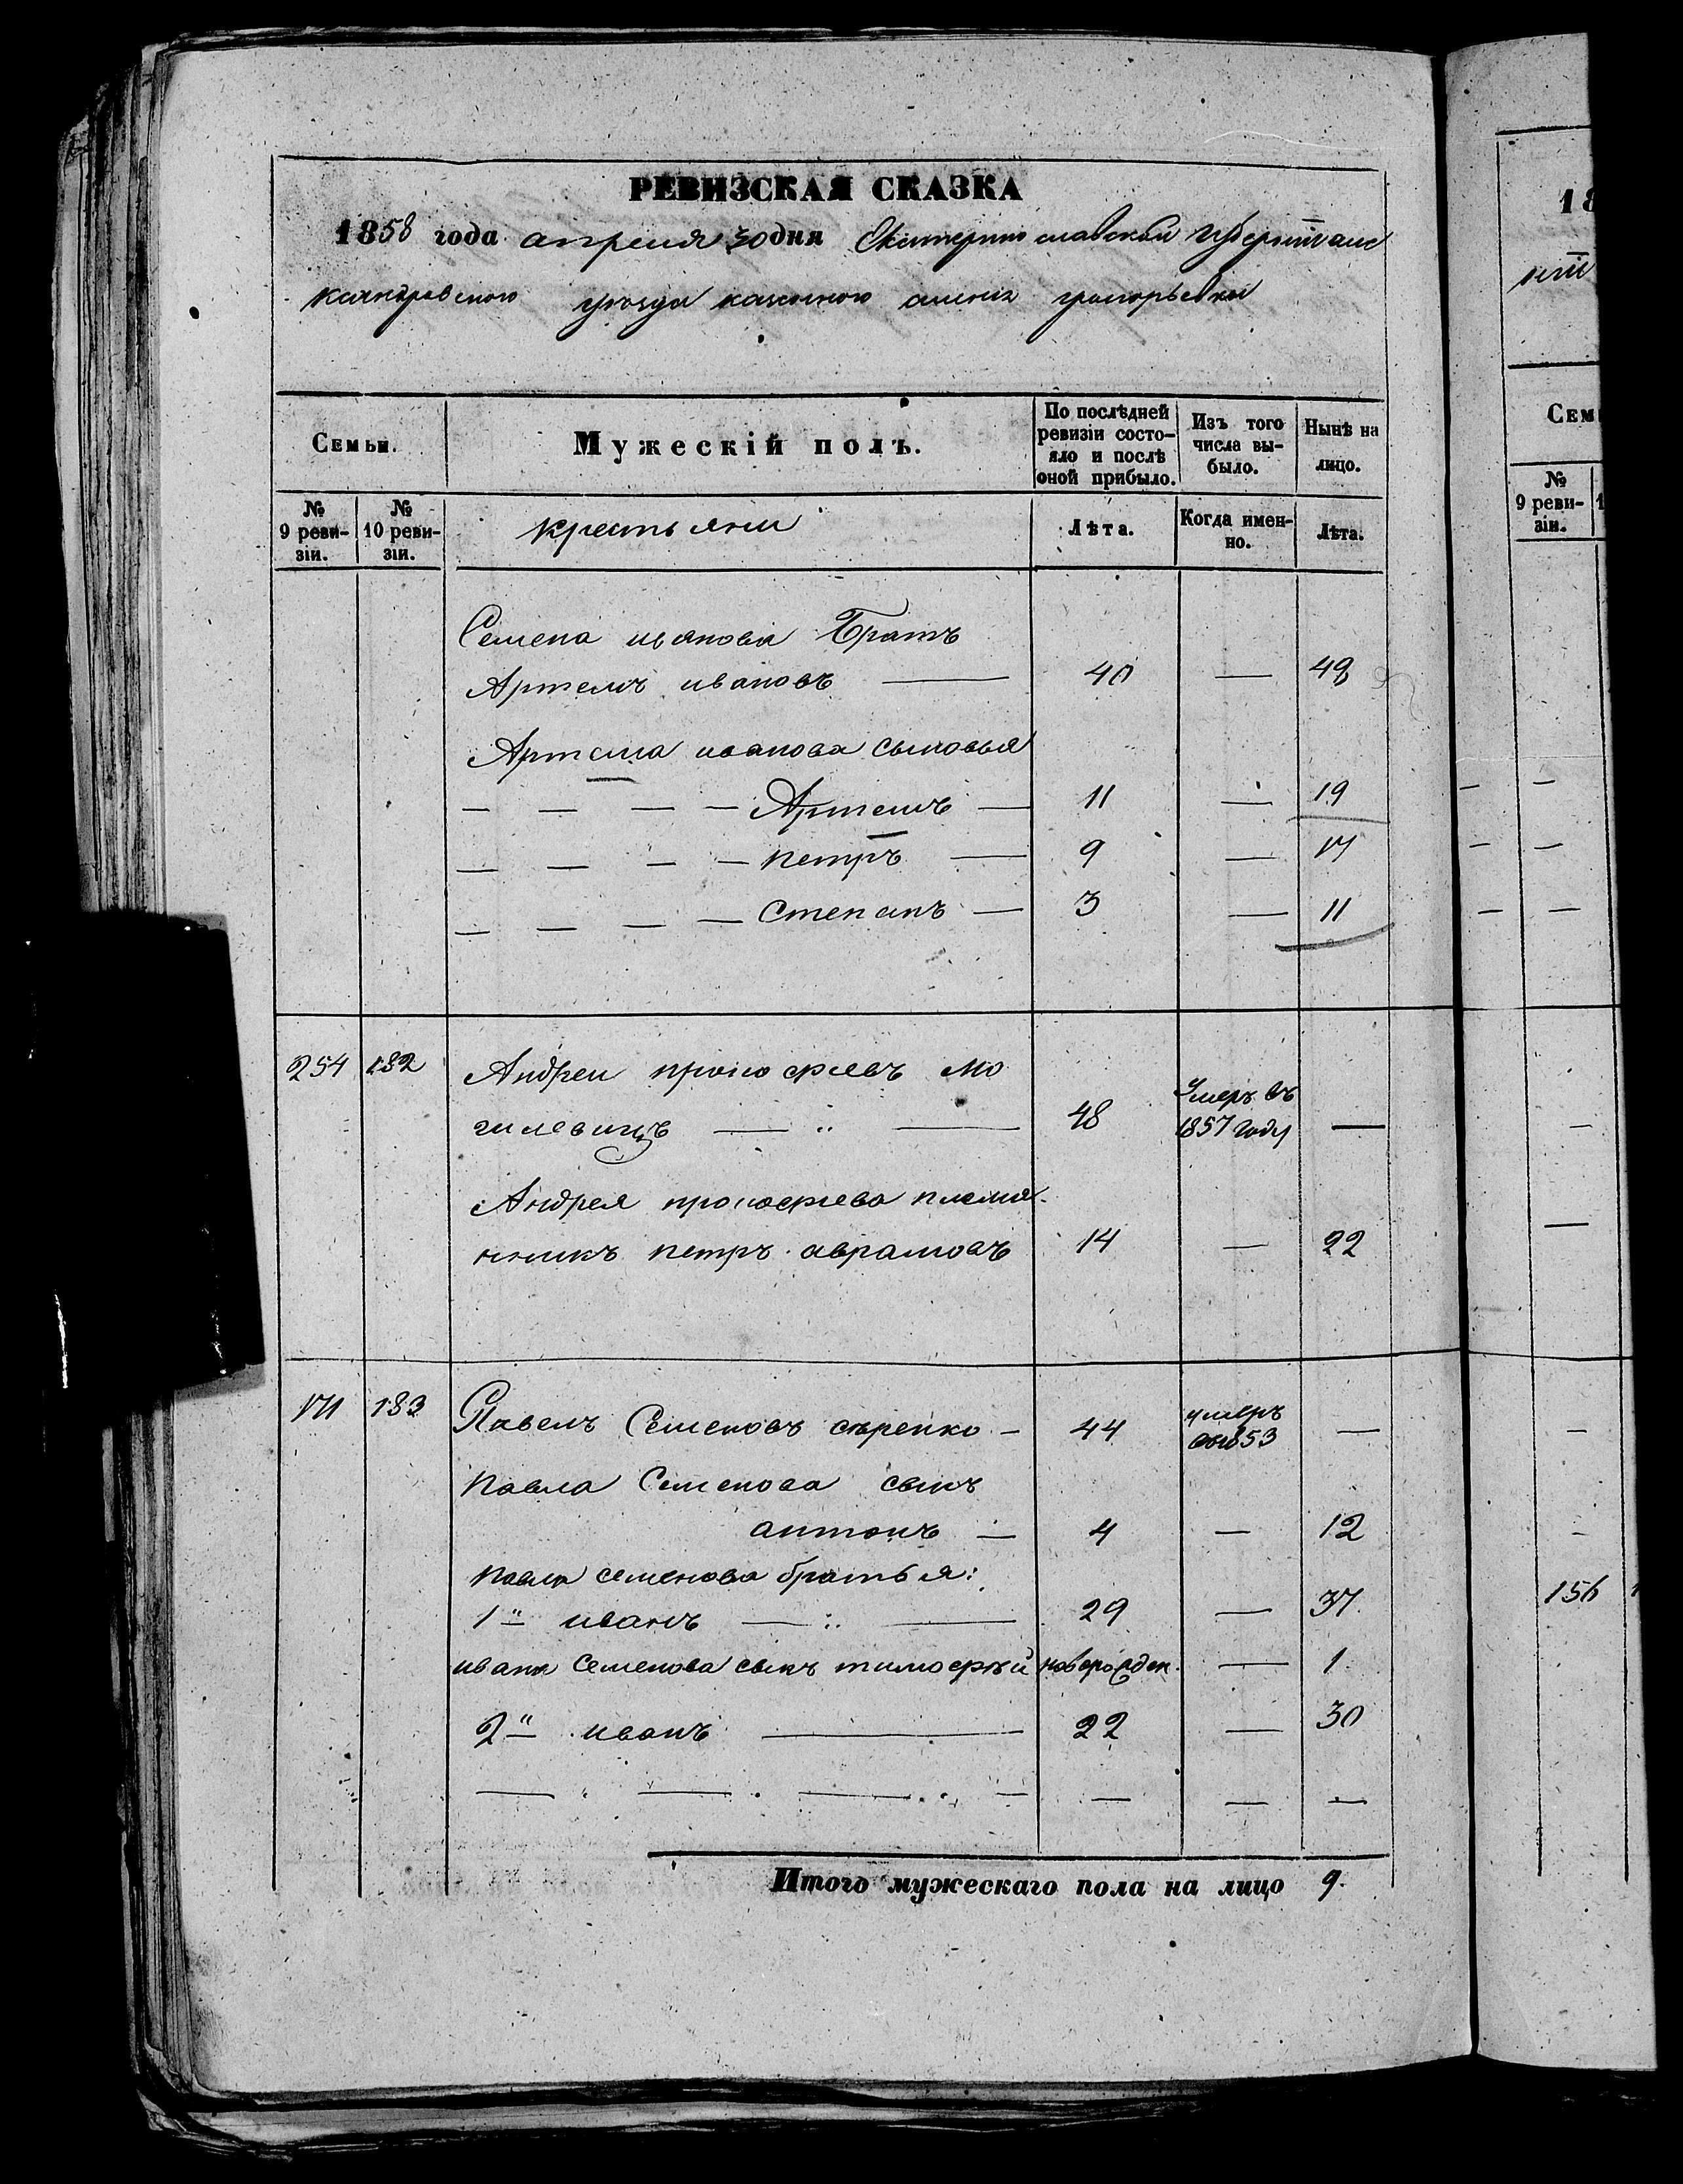 РЕВИЗСКАЯ СКАЗКА
1858 года апреля 30 дня Екатеринославской губерніи алек
сандровского уезда казенного григорьевки
Семьи. Мужескій полъ. По послѣдней ревизіи состояло и послѣ оной прибыло. Изъ того числа выбыло. Нынѣ на лицо.
№ 9 ревизіи. № 10 ревизіи. крестьяни Лѣта. Когда именно. Лѣта.
Семена иванова Братъ
Артемъ ивановъ — 40 — 48
Артема иванова сыновья
— — — — Артемъ — 11 — 19
— — — — петръ — 9 — 17
— — — — степанъ — 3 — 11
254 182 Андреи прокофиевъ мо
гилевицъ — 48 Умеръ въ 1857 году —
Андрея прокофиева племя
нникъ петръ аврамовъ 14 — 22
171 183 Павелъ Семеновъ сѣренко — 44 умеръ 1853 —
Павла Семенова сынъ
антонъ — 4 — 12
павла семенова братья:
1й иванъ — 29 — 37
ивана Семенова сынъ тимофѣй новорожден. — 1
2й иванъ — 22 — 30
Итого мужескаго пола на лицо 9.
18
Сем
№ 9 ревизіи.
156